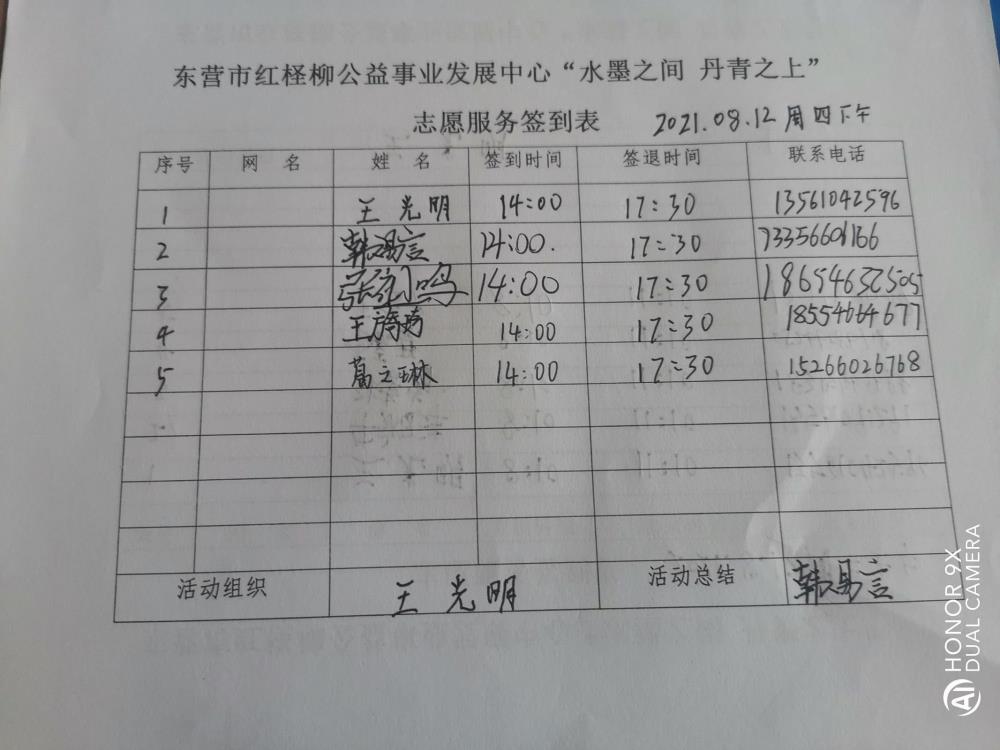 东营市红柽柳公益事业发展中心“水墨之间 丹青之上”
志愿服务签到表 2021.08.12周四下午
序号 网 名 姓 名 签到时间 签退时间 联系电话
1 王光明 14:00 17:30 13561042596
2 韩易言 14:00. 17:30
3 14:00 17:30
4 王 14:00 17:30 18554664677
5 葛立琳 14:00 17:30 15266026768
活动组织 王光明 活动总结 韩易言
HONOR 9X
DUAL CAMERA